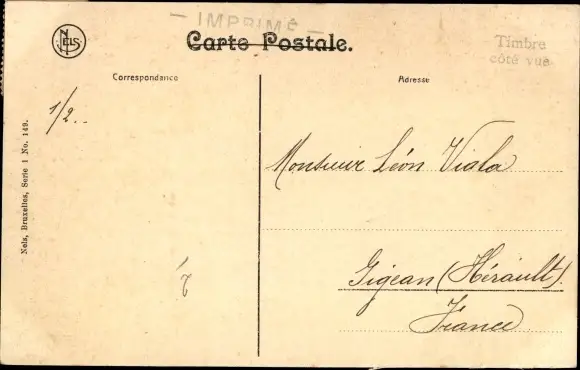 — IMPRIMÉ —
NELS
Carte Postale.
Timbre
côté vue
Correspondance
Adresse
1/2..
Nels, Bruxelles, Serie 1 No. 149.
Monsieur Léon Viala
Gigean (Hérault).
France